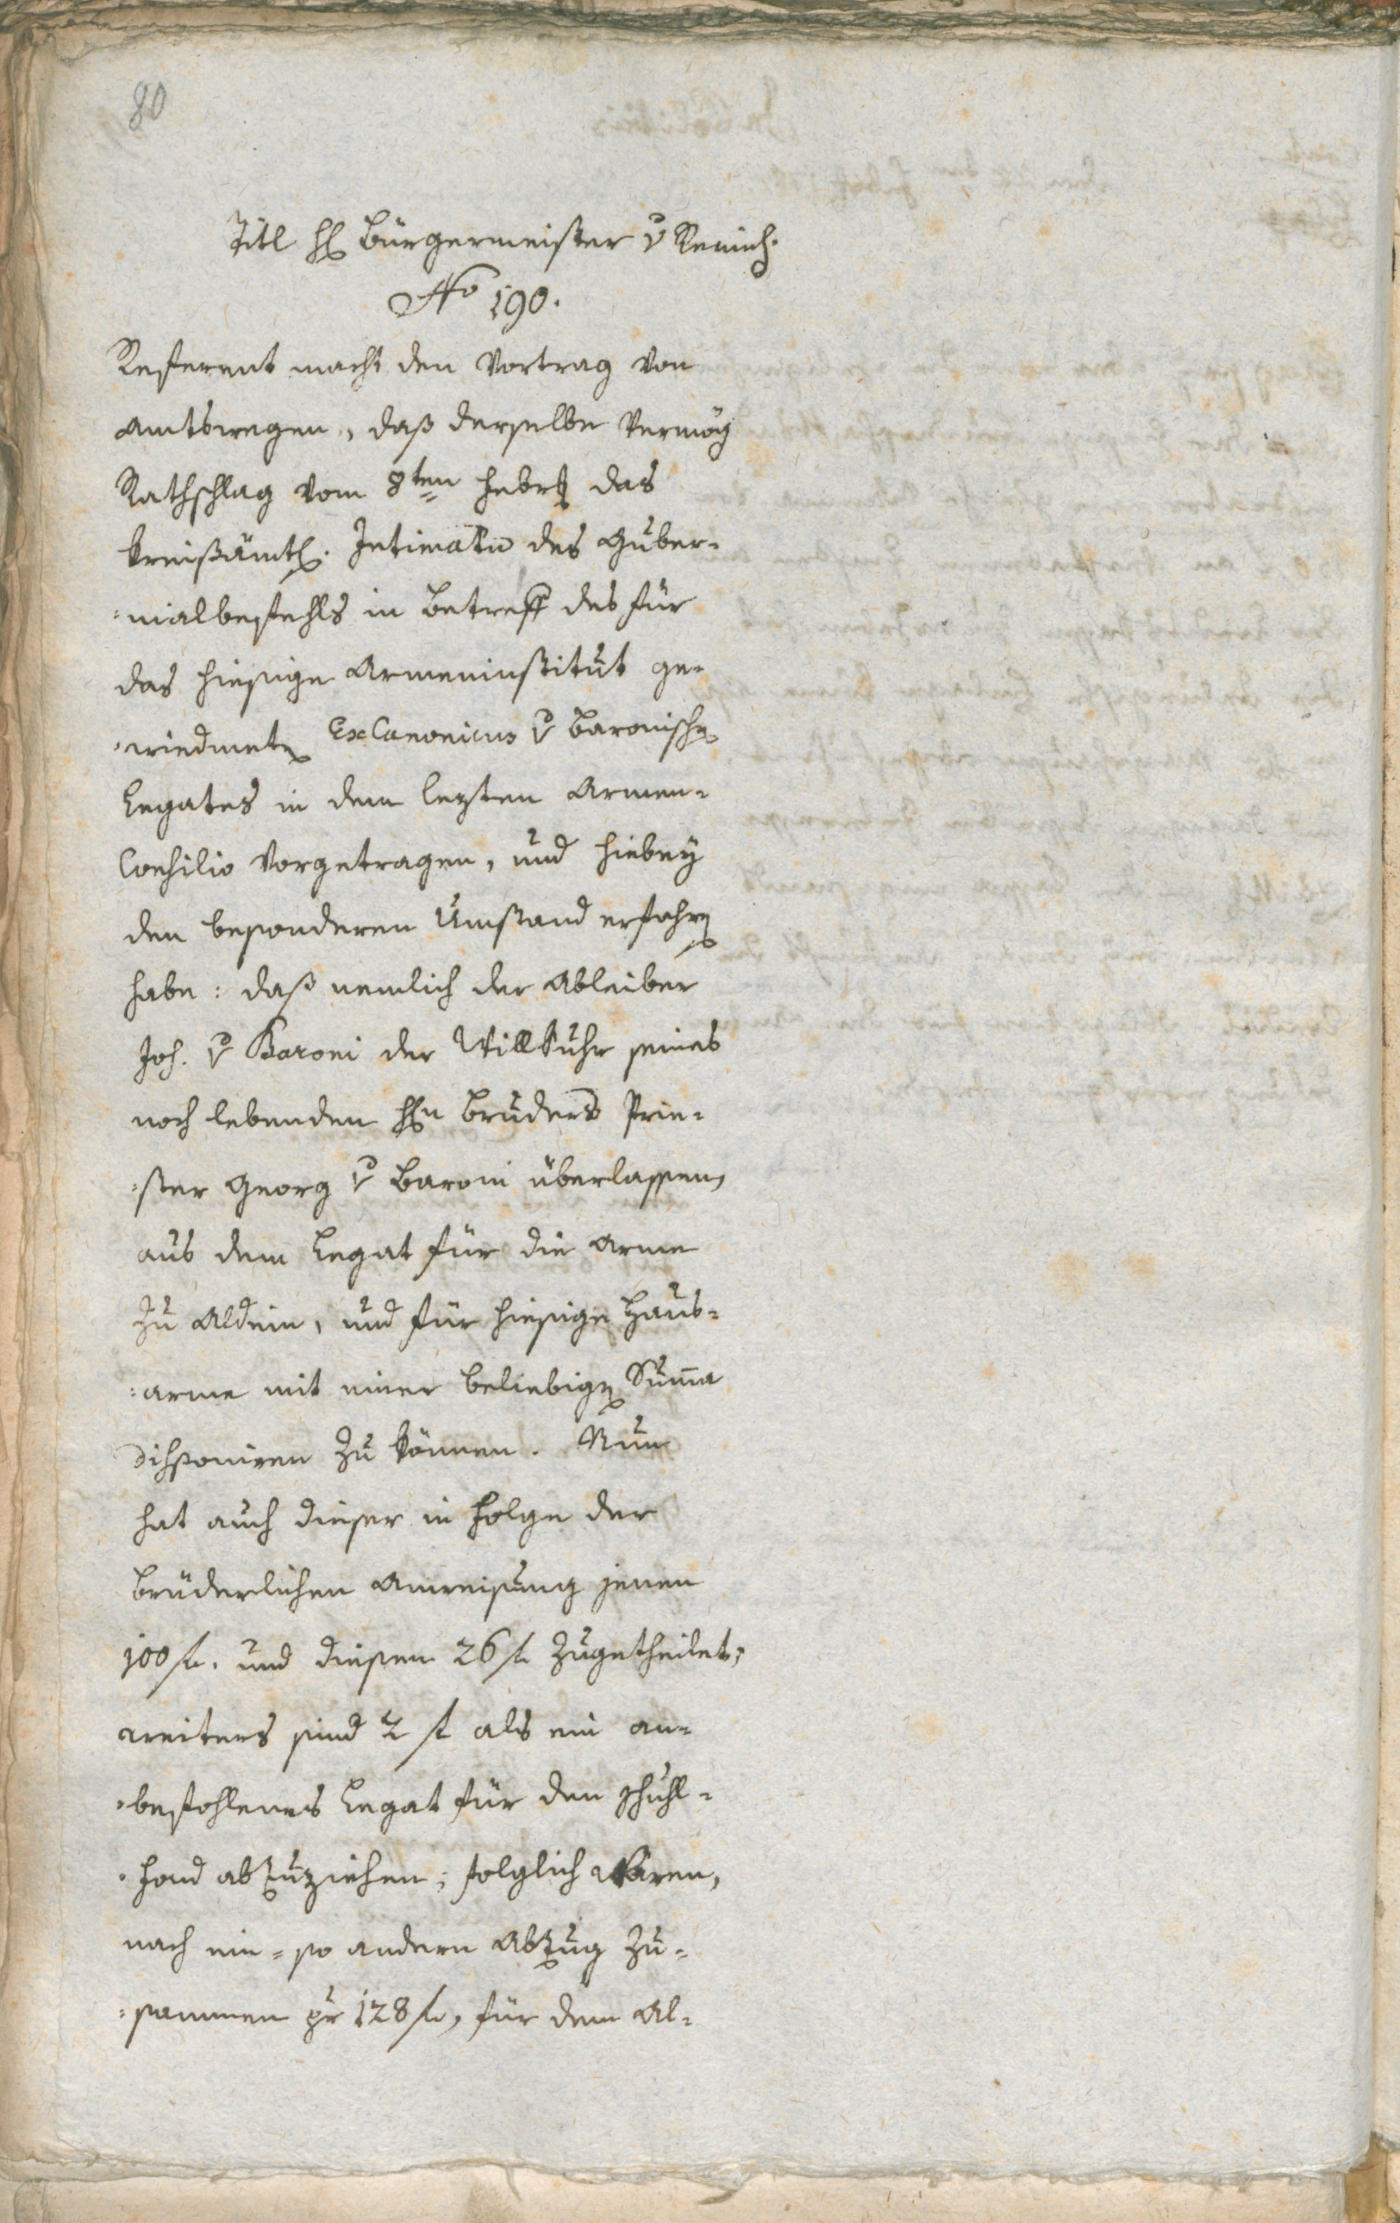 80
Titl H Bürgermeister v Remich.
No 190.
Referent macht den Vortrag von
Amtswegen, daß derselbe Vermög
Rathschlag vom 8ten Febr das
kreißämtl. Intimatū des Guber-
nialbefehls in Betreff des für
das hiesige Armeninstitut ge-
wiedmeten Ex Canonicus v Baronischen
Legates in dem lezten Armen-
Consilio Vorgetragen, und hiebey
den besonderen Umstand erfahren
habe: daß nemlich der Ableiber
Joh. v Baroni der Willkuhr seines
noch lebenden Hn Bruders Prie-
ster Georg v Baroni überlassen,
aus dem Legat für die Arme
zu Aldein, und für hiesige Haus-
arme mit einer beliebigen Suma
disponiren zu können. Nun
hat auch dieser in Folge der
Brüderlichen Anweisung jenen
100 f. und diesen 26 f zugetheilet;
weiters sind 2 f als ein an-
befohlenes Legat für den Schuhl-
Fond abzuziehen; folglich wären,
nach ein- so andern Abzug zu-
sammen pr 128 f, für dem Al-